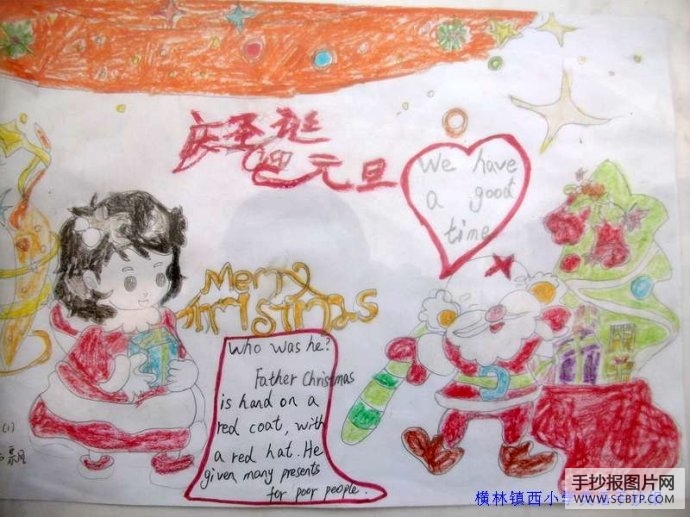 庆圣诞
迎元旦
We have
a good
time
Merry
Christmas
Who was he?
Father Christmas
is hand on a
red coat, with
a red hat. He
given many presents
for poor people.
(1)
横林镇西小学
手抄报图片网
WWW.SCBTP.COM